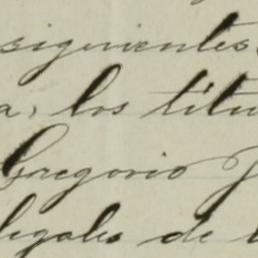 siguientes
a, los títu
Gregorio
legales de l